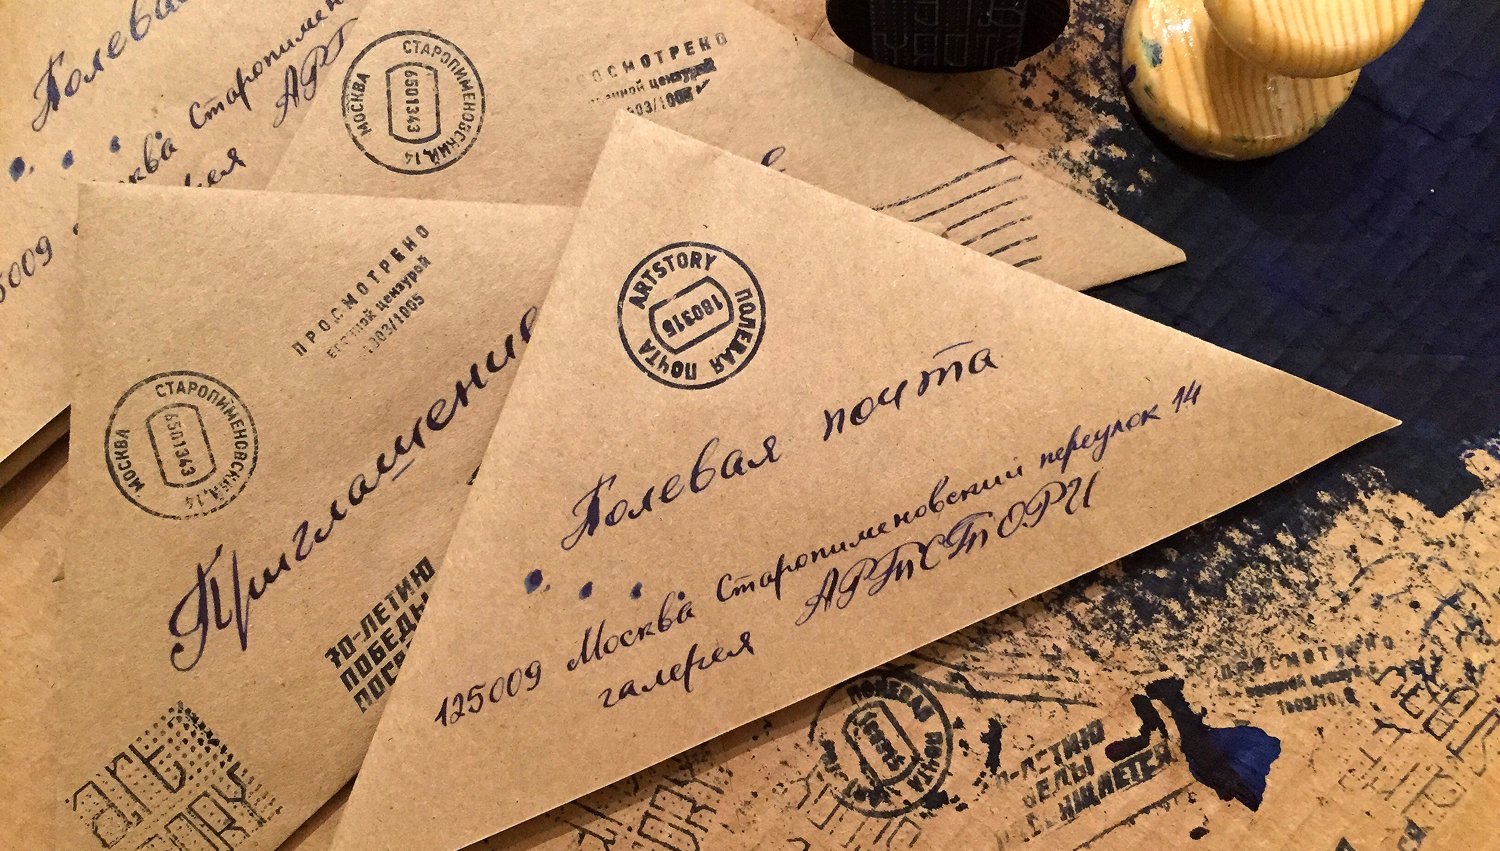 Полевая
Москва Старопименовский
АРТ
5009
МОСКВА СТАРОПИМЕНОВСКИЙ, 14
6501343
ПРОСМОТРЕНО
военной цензурой
1303/1005
ПРОСМОТРЕНО
военной цензурой
1303/1005
МОСКВА СТАРОПИМЕНОВСКИЙ, 14
6501343
Приглашение
70-ЛЕТИЮ
ПОБЕДЫ
ПОСВ
art
STORY
ARTSTORY ПОЛЕВАЯ ПОЧТА
180315
Полевая почта
125009 Москва Старопименовский переулок 14
галерея АРТСТОРИ
ПОЛЕВАЯ ПОЧТА
ПРОСМОТРЕНО
военной цензурой
-ЛЕТИЮ
БЕДЫ
ЩАЕТСЯ